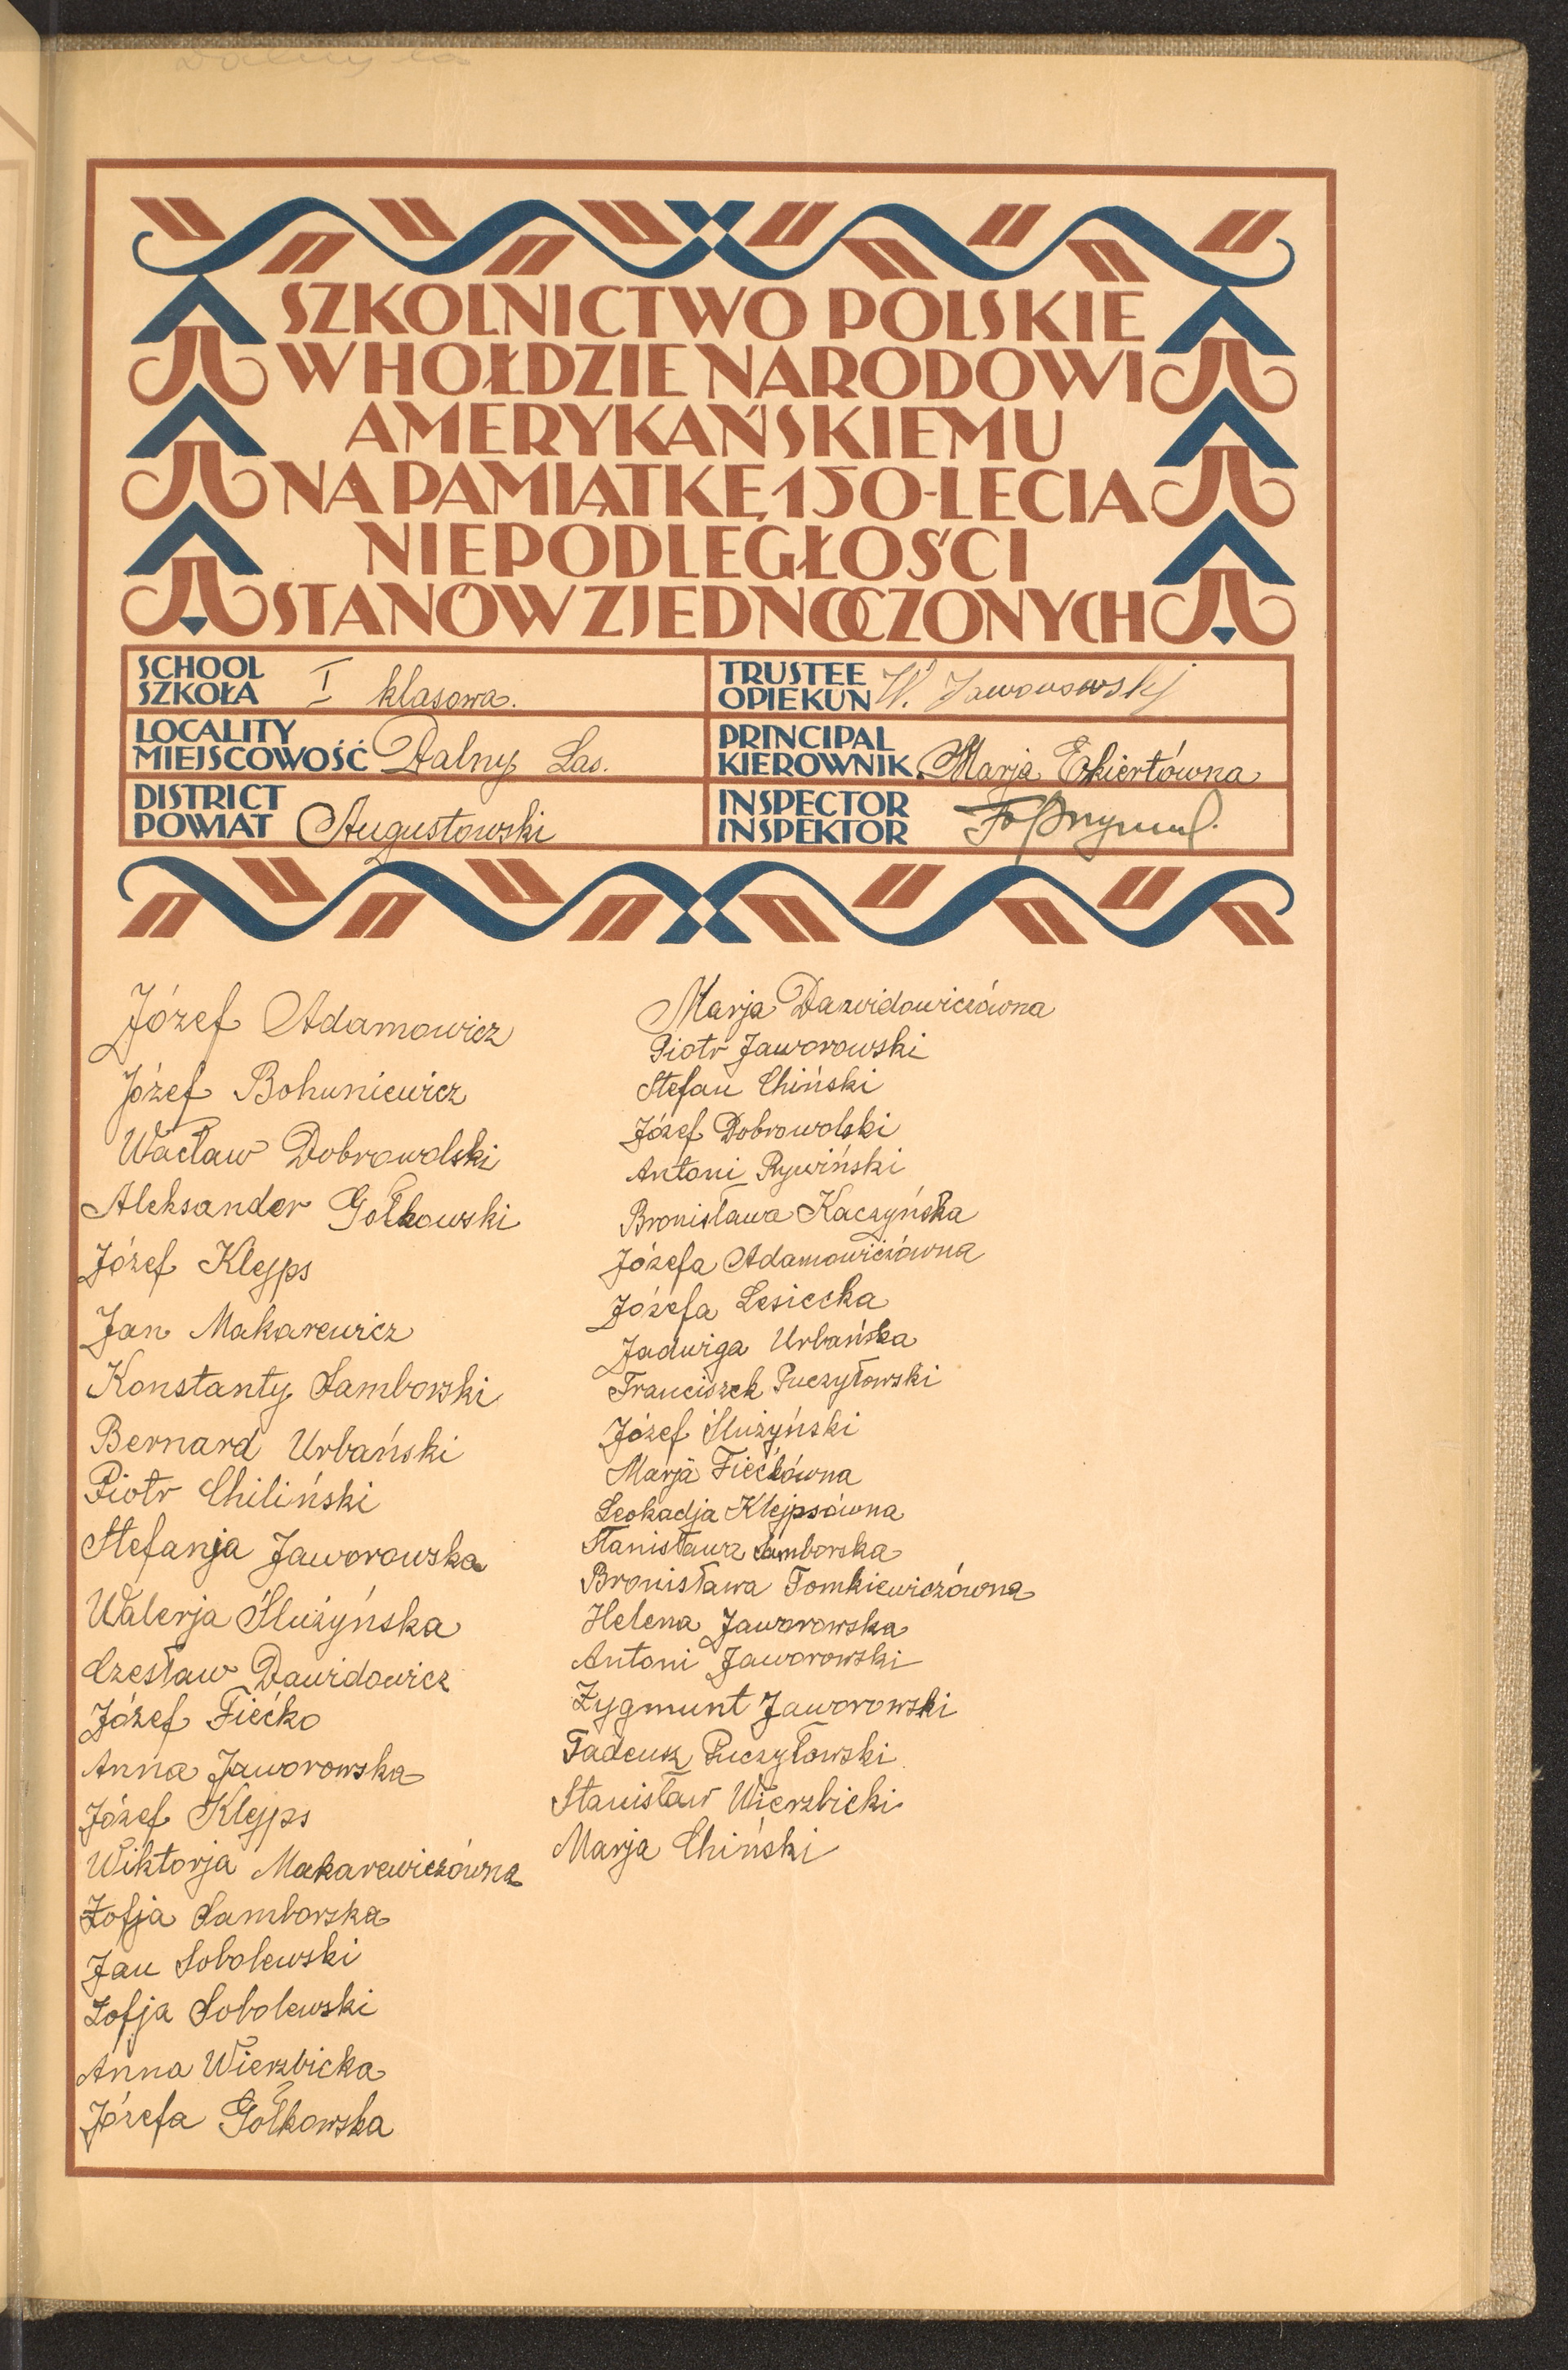 SZKOLNICTWO POLSKIE
W HOŁDZIE NARODOWI
AMERYKAŃSKIEMU
NA PAMIĄTKĘ 150-LECIA
NIEPODLEGŁOŚCI
STANÓW ZJEDNOCZONYCH
SCHOOL
SZKOŁA I klasowa.
TRUSTEE
OPIEKUN W. Jaworowskj
LOCALITY
MIEJSCOWOŚĆ Dalny Las.
PRINCIPAL
KIEROWNIK Marja Ekiertówna
DISTRICT
POWIAT Augustowski
INSPECTOR
INSPEKTOR
Józef Adamowicz
Józef Bohuniewicz
Wacław Dobrowolski
Aleksander Gołkowski
Józef Klejps
Jan Makarewicz
Konstanty Samborski
Bernard Urbański
Piotr Chiliński
Stefanja Jaworowska
Walerja Służyńska
Czesław Dawidowicz
Józef Fiećko
Anna Jaworowska
Józef Klejps
Wiktorja Makarewiczówna
Zofja Samborska
Jan Sobolewski
Zofja Sobolewski
Anna Wierzbicka
Józefa Gołkowska
Marja Dawidowiczówna
Piotr Jaworowski
Stefan Chiński
Józef Dobrowolski
Antoni Rywiński
Bronisława Kaczyńska
Józefa Adamowiczówna
Józefa Lesiecka
Jadwiga Urbańska
Franciszek Puczyłowski
Józef Służyński
Marja Fiećkówna
Leokadja Klejpsówna
Stanisława Samborska
Bronisława Tomkiewiczówna
Helena Jaworowska
Antoni Jaworowski
Zygmunt Jaworowski
Tadeusz Puczyłowski
Stanisław Wierzbicki
Marja Chiński